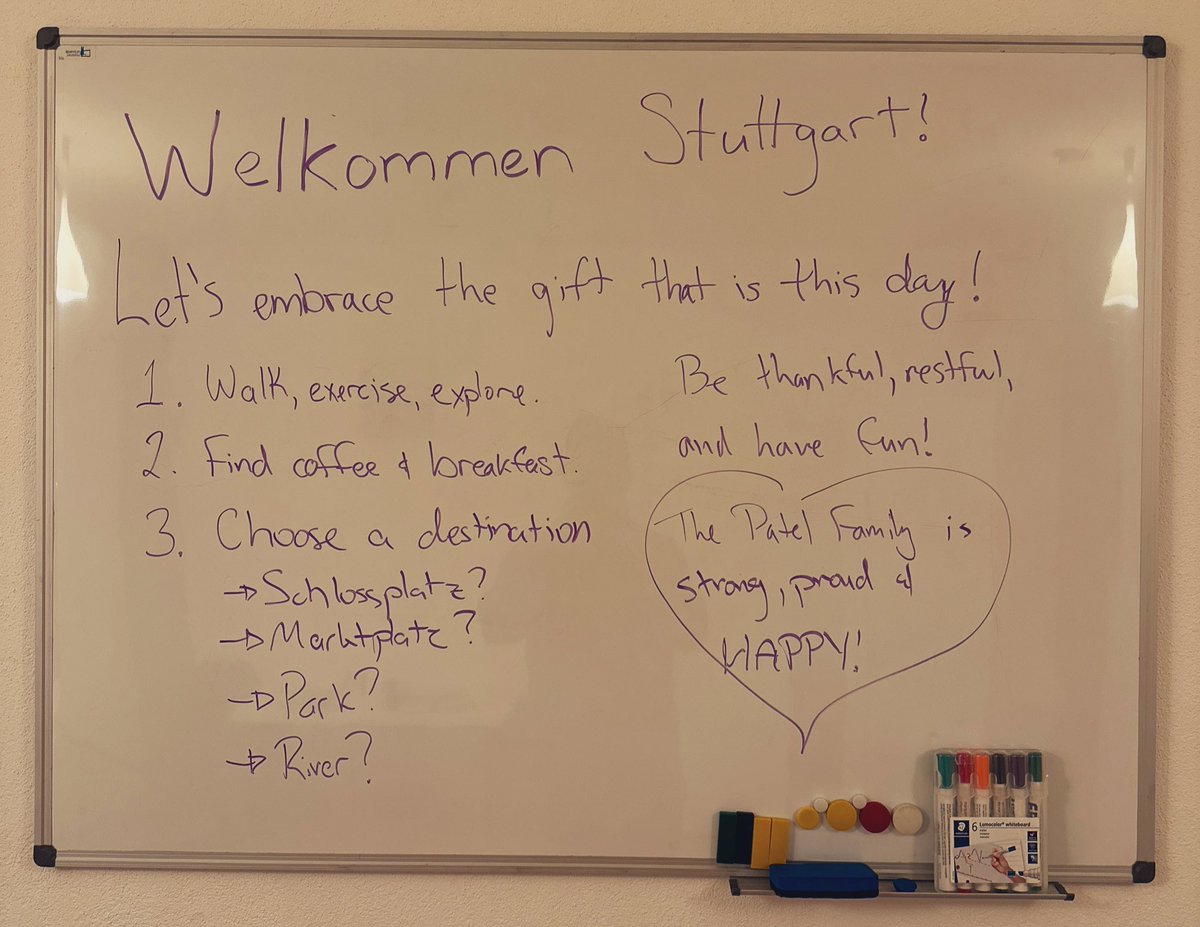 Welkommen Stuttgart!
Let's embrace the gift that is this day!
1. Walk, exercise, explore.
2. Find coffee & breakfast.
3. Choose a destination
→ Schlossplatz?
→ Marktplatz?
→ Park?
→ River?
Be thankful, restful,
and have fun!
The Patel Family is
strong, proud &
HAPPY!
6 Lumocolor® whiteboard